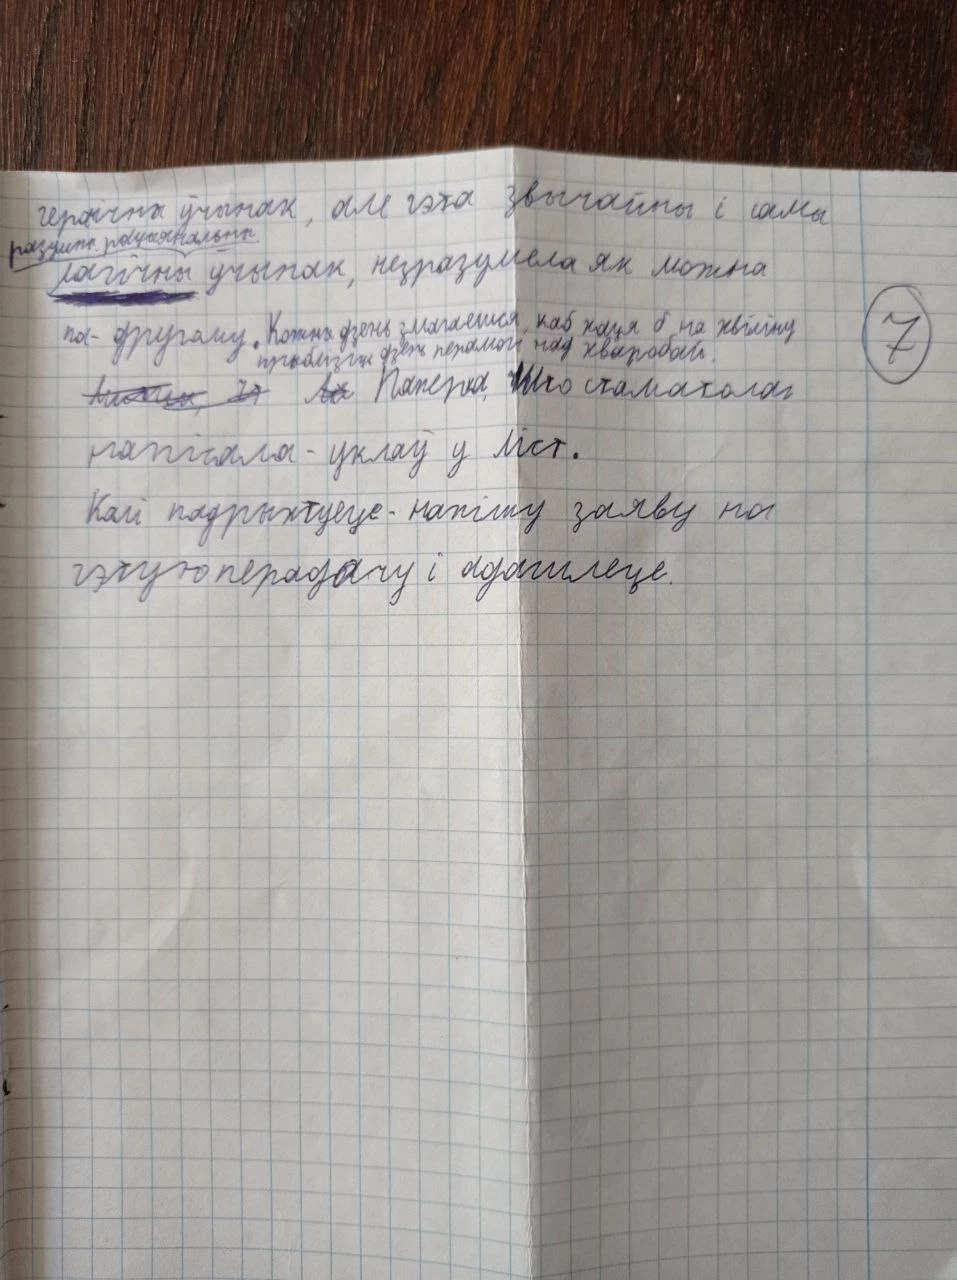 гераічны ўчынак, але гэта звычайны і самы
разумны рацыянальны
лагічны ўчынак, незразумела як можна
па-другому. Кожны дзень змагаешся, каб хаця б на хвіліну
прыблізіць дзень перамогі над хваробай.
Паперка, што стаматолаг
напісала - уклаў у ліст.
Калі падрыхтуеце - напішу заяву на
гэтую перадачу і адашлеце.
7